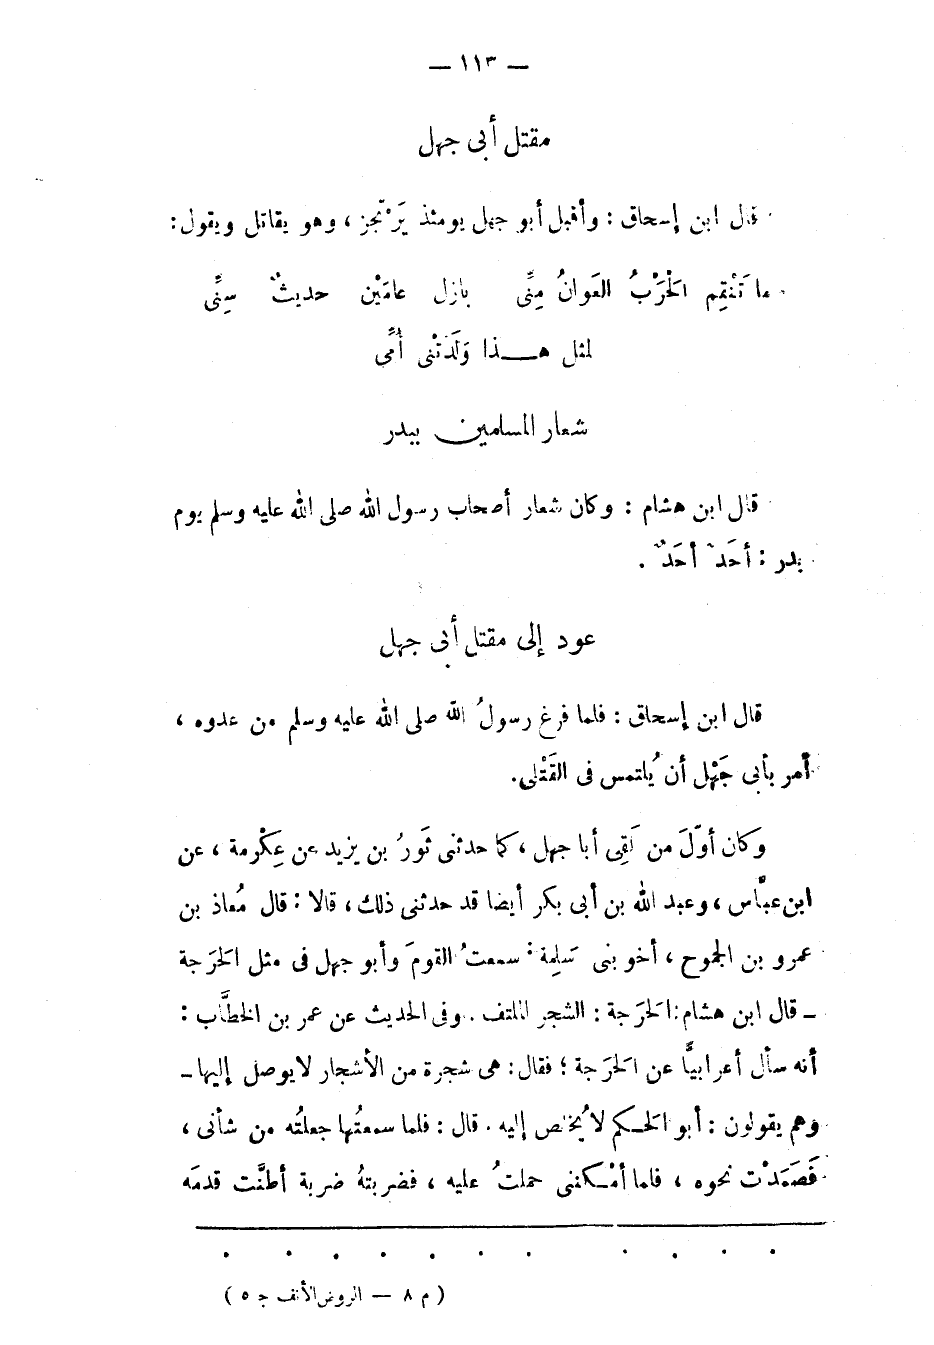 — ١١٣ —
مقتل أبى جهل
قال ابن إسحاق : وأقبل أبو جهل يومئذ يَرْتجز ، وهو يقاتل ويقول :
ما تَنْقِم الحَرْبُ العَوانُ مِنِّى بازل عامَيْن حديثٌ سِنِّى
لمثل هـــذا وَلَدَتْنى أُمِّى
شعار المسلمين ببدر
قال ابن هشام : وكان شعار أصحاب رسول الله صلى الله عليه وسلم يوم
بدر : أحَدٌ أحَدٌ .
عود إلى مقتل أبى جهل
قال ابن إسحاق : فلما فرغ رسولُ الله صلى الله عليه وسلم من عدوه ،
أمر بأبى جَهْل أن يُلتمس فى القَتْلى .
وكان أوّلَ من لَقِى أبا جهل ، كما حدثنى ثَورُ بن يزيد عن عِكْرمة ، عن
ابن عبَّاس ، وعبد الله بن أبى بكر أيضا قد حدثنى ذلك ، قالا : قال مُعاذ بن
عمرو بن الجموح ، أخو بنى سَلِمة : سمعتُ القومَ وأبو جهل فى مثل الحَرَجة
ــ قال ابن هشام : الحَرَجة : الشجر الملتف . وفى الحديث عن عمر بن الخطَّاب :
أنه سأل أعرابيًّا عن الحَرَجة ؛ فقال : هى شجرة من الأشجار لايوصل إليها ــ
وهم يقولون : أبو الحـكم لا يُخلص إليه . قال : فلما سمعتُها جعلتُه من شأنى ،
فَصَمَدْت نحوه ، فلما أمْـكننى حملتُ عليه ، فضربتهُ ضربة أطنَّت قدمَه
. . . . . . . . . . .
( م ٨ — الروض الأنف جـ ٥ )